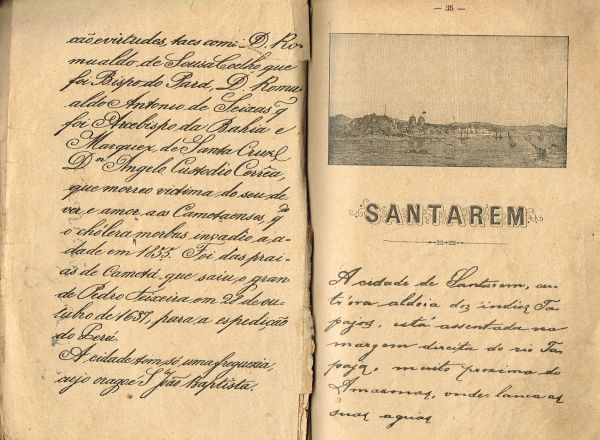 cão e virtudes, taes como D. Ro-
mualdo de Sousa Coelho que
foi Bispo do Pará, D. Romu
aldo Antonio de Seixas q
foi Arcebispo da Bahia e
Marquez de Santa Cruz e
D.or Angelo Custodio Corrêa,
que morreo victima do seu de
ver e amor aos Cametaenses, q.do
o chólera morbus invadio a ci-
dade em 1855. Foi das prai-
as de Cametá que saiu o gran
de Pedro Teixeira em 28 de ou-
tubro de 1637, para a espedição
do Perú.
A cidade tem só uma freguezia,
cujo orago é S. João Baptista.
— 35 —
SANTAREM
A cidade de Santarem, an-
tiga aldeia dos indios Ta-
pajos, está assentada na
margem direita do rio Ta-
pajoz, muito proxima do
Amazonas, onde lança as
suas aguas